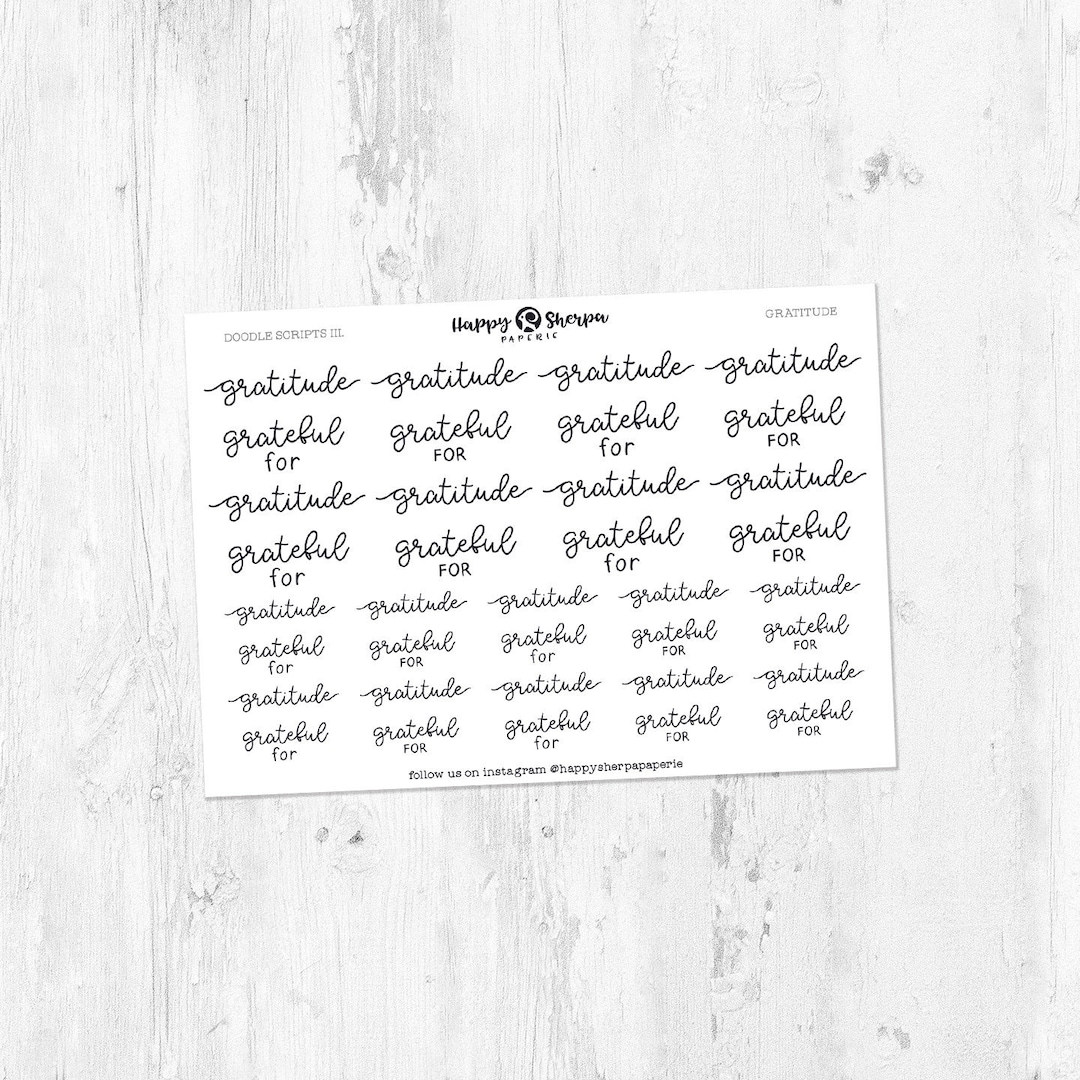 DOODLE SCRIPTS III.
Happy Sherpa
PAPERIE
GRATITUDE
gratitude gratitude gratitude gratitude
grateful grateful grateful grateful
for FOR for FOR
gratitude gratitude gratitude gratitude
grateful grateful grateful grateful
for FOR for FOR
gratitude gratitude gratitude gratitude gratitude
grateful grateful grateful grateful grateful
for FOR for FOR FOR
gratitude gratitude gratitude gratitude gratitude
grateful grateful grateful grateful grateful
for FOR for FOR FOR
follow us on instagram @happysherpapaperie